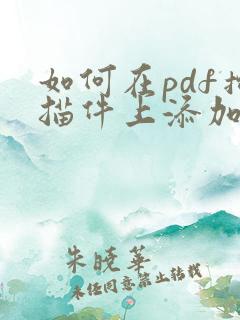 如何在pdf扫
描件上添加
朱晓华
未经同意禁止转载